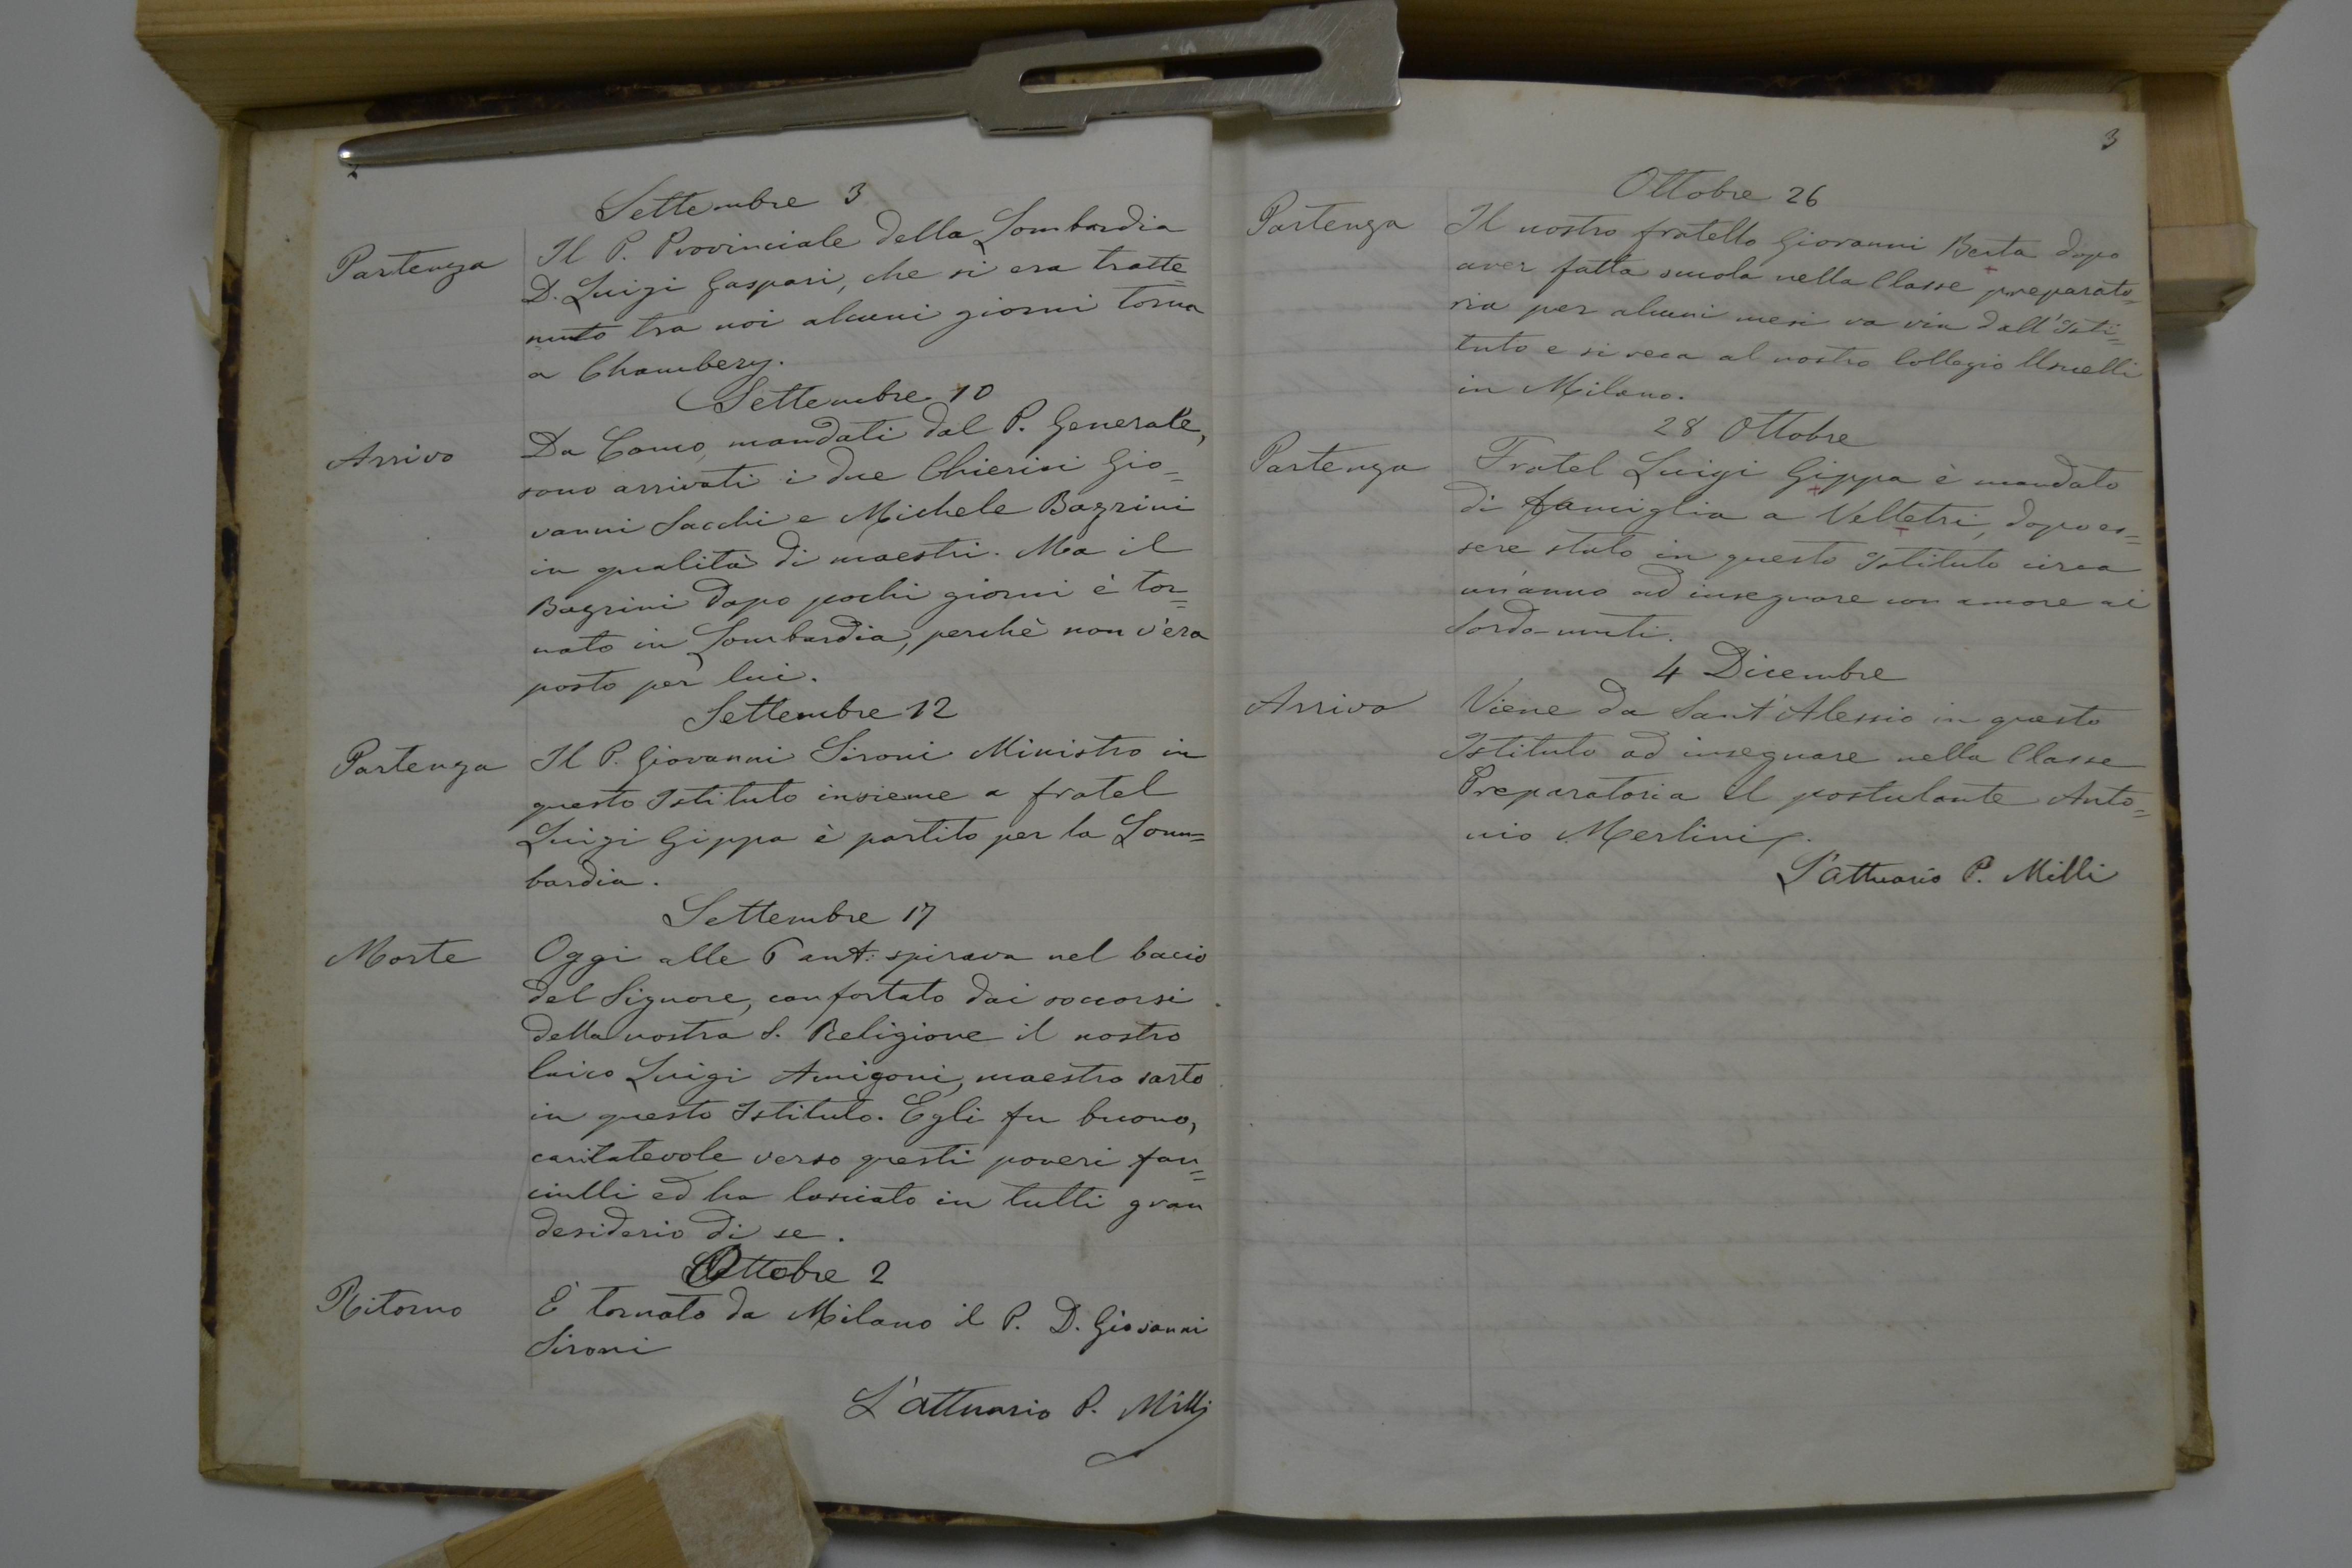 2
Settembre 3
Partenza
Il P. Provinciale della Lombardia
D. Luigi Gaspari, che si era tratte=
nuto tra noi alcuni giorni torna
a Chambery.
Settembre 10
Arrivo
Da Como, mandati dal P. Generale,
sono arrivati i due Chierici Gio=
vanni Sacchi e Michele Bagrini
in qualità di maestri. Ma il
Bagrini dopo pochi giorni è tor=
nato in Lombardia, perchè non v'era
posto per lui.
Settembre 12
Partenza
Il P. Giovanni Sironi Ministro in
questo Istituto insieme a fratel
Luigi Gippa è partito per la Lom=
bardia.
Settembre 17
Morte
Oggi alle 6 ant: spirava nel bacio
del Signore, confortato dai soccorsi
della nostra S. Religione il nostro
laico Luigi Amigoni, maestro sarto
in questo Istituto. Egli fu buono,
caritatevole verso questi poveri fan=
ciulli ed ha lasciato in tutti gran
desiderio di se.
Ottobre 2
Ritorno
È tornato da Milano il P. D. Giovanni
Sironi
L'attuario P. Milli
3
Ottobre 26
Partenza
Il nostro fratello Giovanni Berta dopo
aver fatta scuola nella Classe preparato=
ria per alcuni mesi va via dall'Isti=
tuto e si reca al nostro Collegio Usuelli
in Milano.
28 Ottobre
Partenza
Fratel Luigi Gippa è mandato
di famiglia a Velletri, dopo es=
sere stato in questo Istituto circa
un'anno ad insegnare con amore ai
Sordo-muti.
4 Dicembre
Arrivo
Viene da Sant'Alessio in questo
Istituto ad insegnare nella Classe
Preparatoria il postulante Anto=
nio Merlini.
L'attuario P. Milli